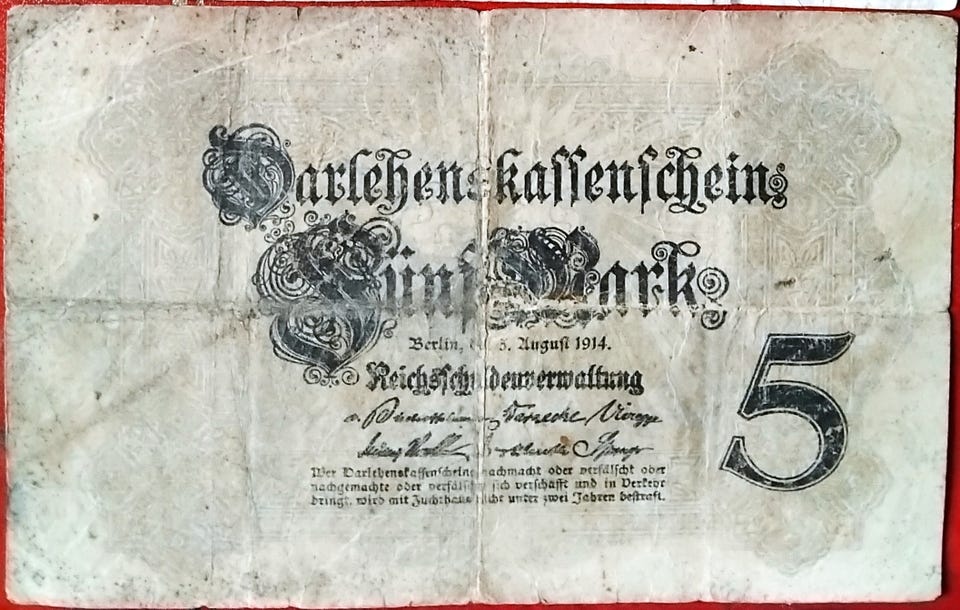 Darlehenskassenschein
Fünf Mark
Berlin, 5. August 1914.
Reichsschuldenverwaltung
Wer Darlehenskassenscheine nachmacht oder verfälscht oder
nachgemachte oder verfälschte sich verschafft und in Verkehr
bringt, wird mit Zuchthaus nicht unter zwei Jahren bestraft.
5